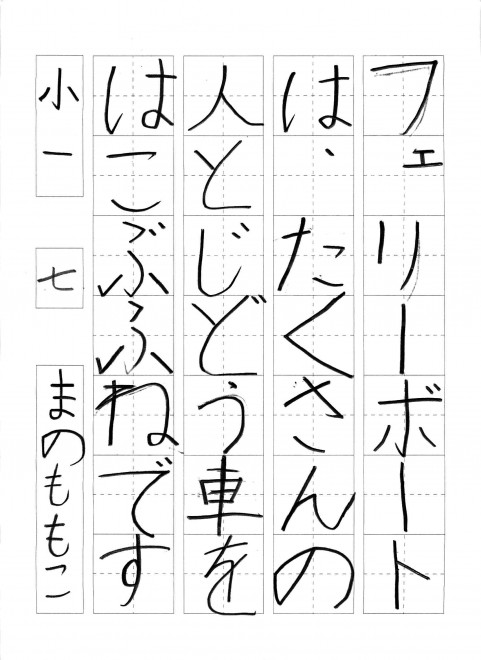 フェリーボート
は、たくさんの
人とじどう車を
はこぶふねです
小一
七
まのももこ